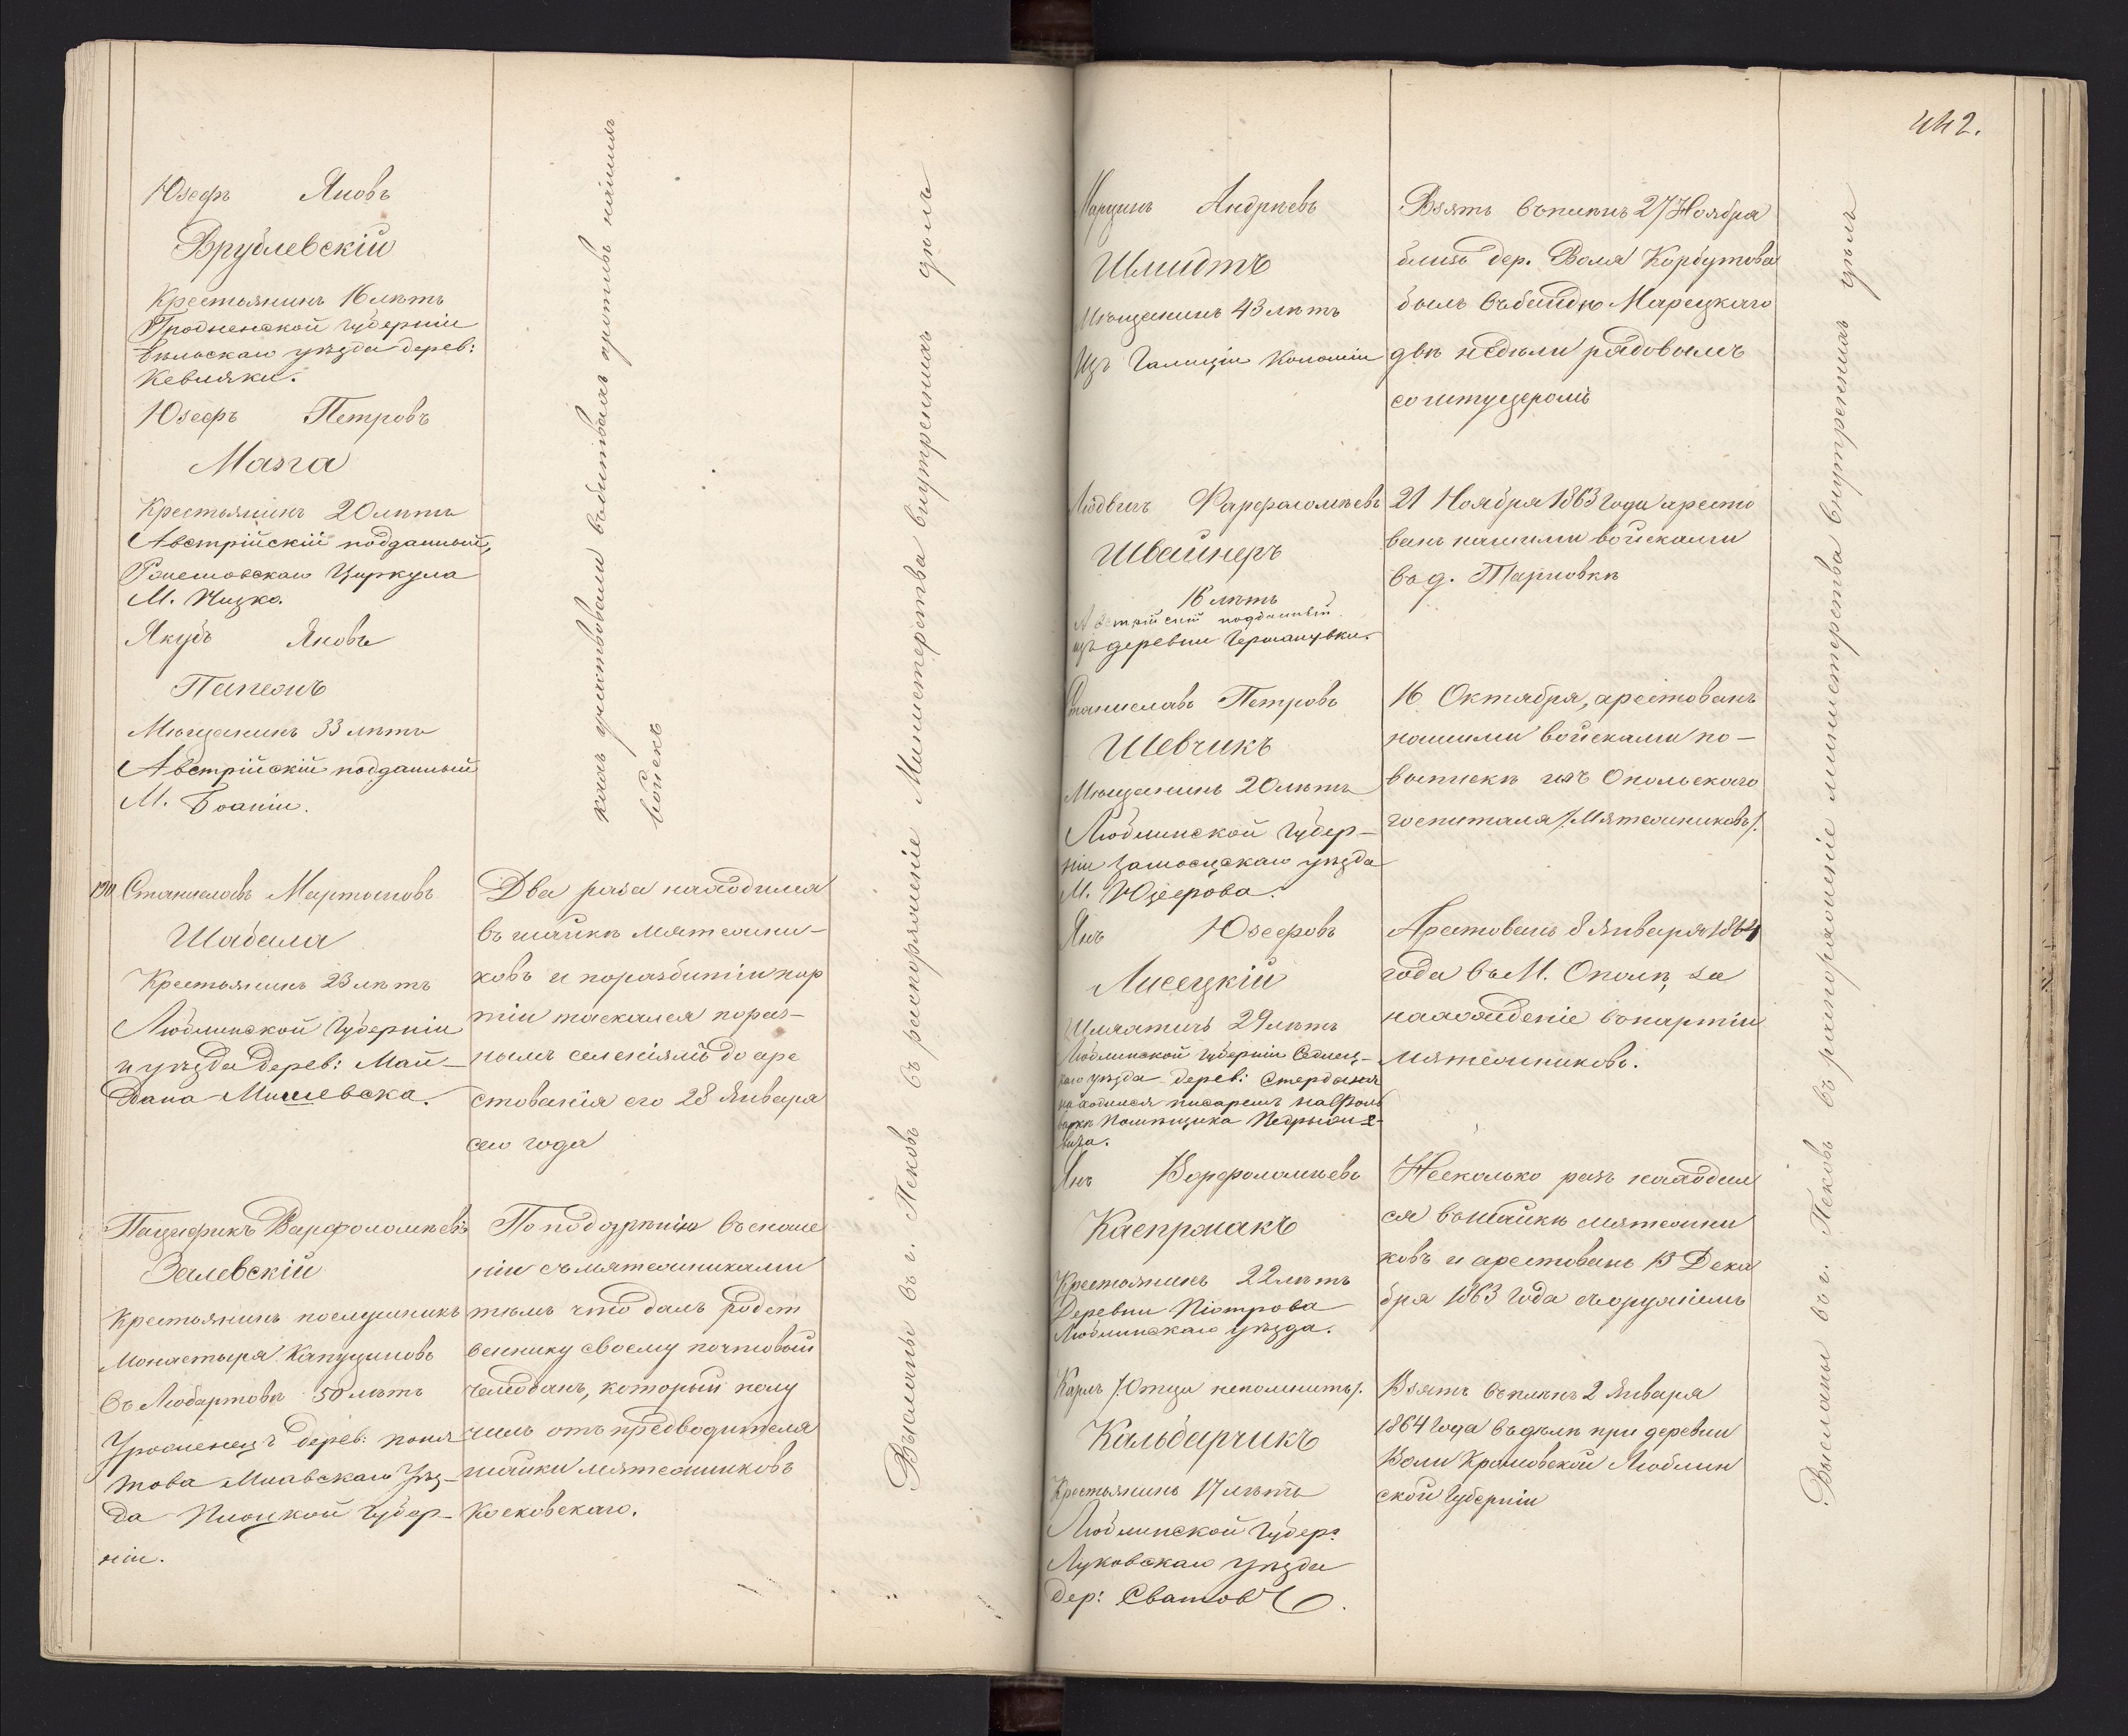 Юзефъ Яновъ
Врублевскій
Крестьянинъ 16 лѣтъ
Гродненской Губерніи
Бѣльскаго уѣзда дерев:
Кевляки.
Юзефъ Петровъ
Мазга
Крестьянинъ 20 лѣтъ
Австрійскій подданный,
Циркула
М.
Якубъ Яновъ
Мѣщанинъ 33 лѣтъ
Австрійскій подданный
М.
кахъ участвовали противъ нашихъ
войскъ
Станиславъ Мартыновъ
Шабала
Крестьянинъ 23 лѣтъ
Люблинской Губерніи
и уѣзда дерев: Май-
дана
Два раза находился
въ шайкѣ мятежни-
ковъ и по разбитіи пар
тіи таскался по раз-
нымъ селеніямъ до аре
стованія его 28 Января
сего года
Пацификъ Варфоломѣевъ
Залевскій
Крестьянинъ послушникъ
Монастыря Капуциновъ
въ Любартовѣ 50 лѣтъ
Уроженецъ дерев: Поня
това Млавскаго Уѣз-
да Плоцкой Губер-
ніи.
По подозрѣнію въ сноше
ніи съ мятежниками
тѣмъ что далъ родст
веннику своему почтовый
чемоданъ, который полу
чилъ отъ предводителя
шайки мятежниковъ
Косковскаго.
Высланы въ г. Псковъ въ распоряженіе Министерства внутреннихъ дѣлъ
442.
Марцинъ Андрѣевъ
Шмидтъ
Мѣщанинъ 43 лѣтъ
Изъ Галиціи Колоніи
Взятъ въ плѣнъ 27 Ноября
близь дер. Воля Корбутова
былъ въ бандѣ Марецкаго
двѣ недѣли рядовымъ
со штуцеромъ
Людвигъ Варфоломѣевъ
Швайнеръ
16 лѣтъ
Австрійскій подданный
изъ деревни Германувки.
21 Ноября 1863 года аресто
ванъ нашими войсками
въ д. Тарновкѣ
Станиславъ Петровъ
Шевчикъ
Мѣщанинъ 20 лѣтъ
Люблинской Губер-
ніи Замосцскаго уѣзда
М. Юзефова.
16 Октября, арестованъ
нашими войсками по-
выпискѣ изъ Опольскаго
госпиталя /Мятежниковъ/.
Янъ Юзефовъ
Лисецкій
Шляхтичъ 29 лѣтъ
Люблинской Губерніи Седлец-
каго уѣзда дерев: Стердыня
находился писаремъ на Фоль
варкѣ Помѣщика
Арестованъ 8 Января 1864
года въ М. Ополѣ, за
нахожденіе въ партіи
мятежниковъ.
Янъ Варфоломѣевъ
Каспржакъ
Крестьянинъ 22 лѣтъ
Деревни Піотрова
Люблинскаго уѣзда.
Несколько разъ находил
ся въ шайкѣ мятежни
ковъ и арестованъ 13 Дека
бря 1863 года съ оружіемъ
Карлъ /Отца непомнитъ/.
Кальбарчикъ
Крестьянинъ 17 лѣтъ
Люблинской Губер:
Луковскаго уѣзда
дер:
Взятъ въ плѣнъ 2 Января
1864 года въ дѣлѣ при деревни
Воли Люблин
ской Губерніи
Высланы въ г. Псковъ въ распоряженіе министерства внутреннихъ дѣлъ